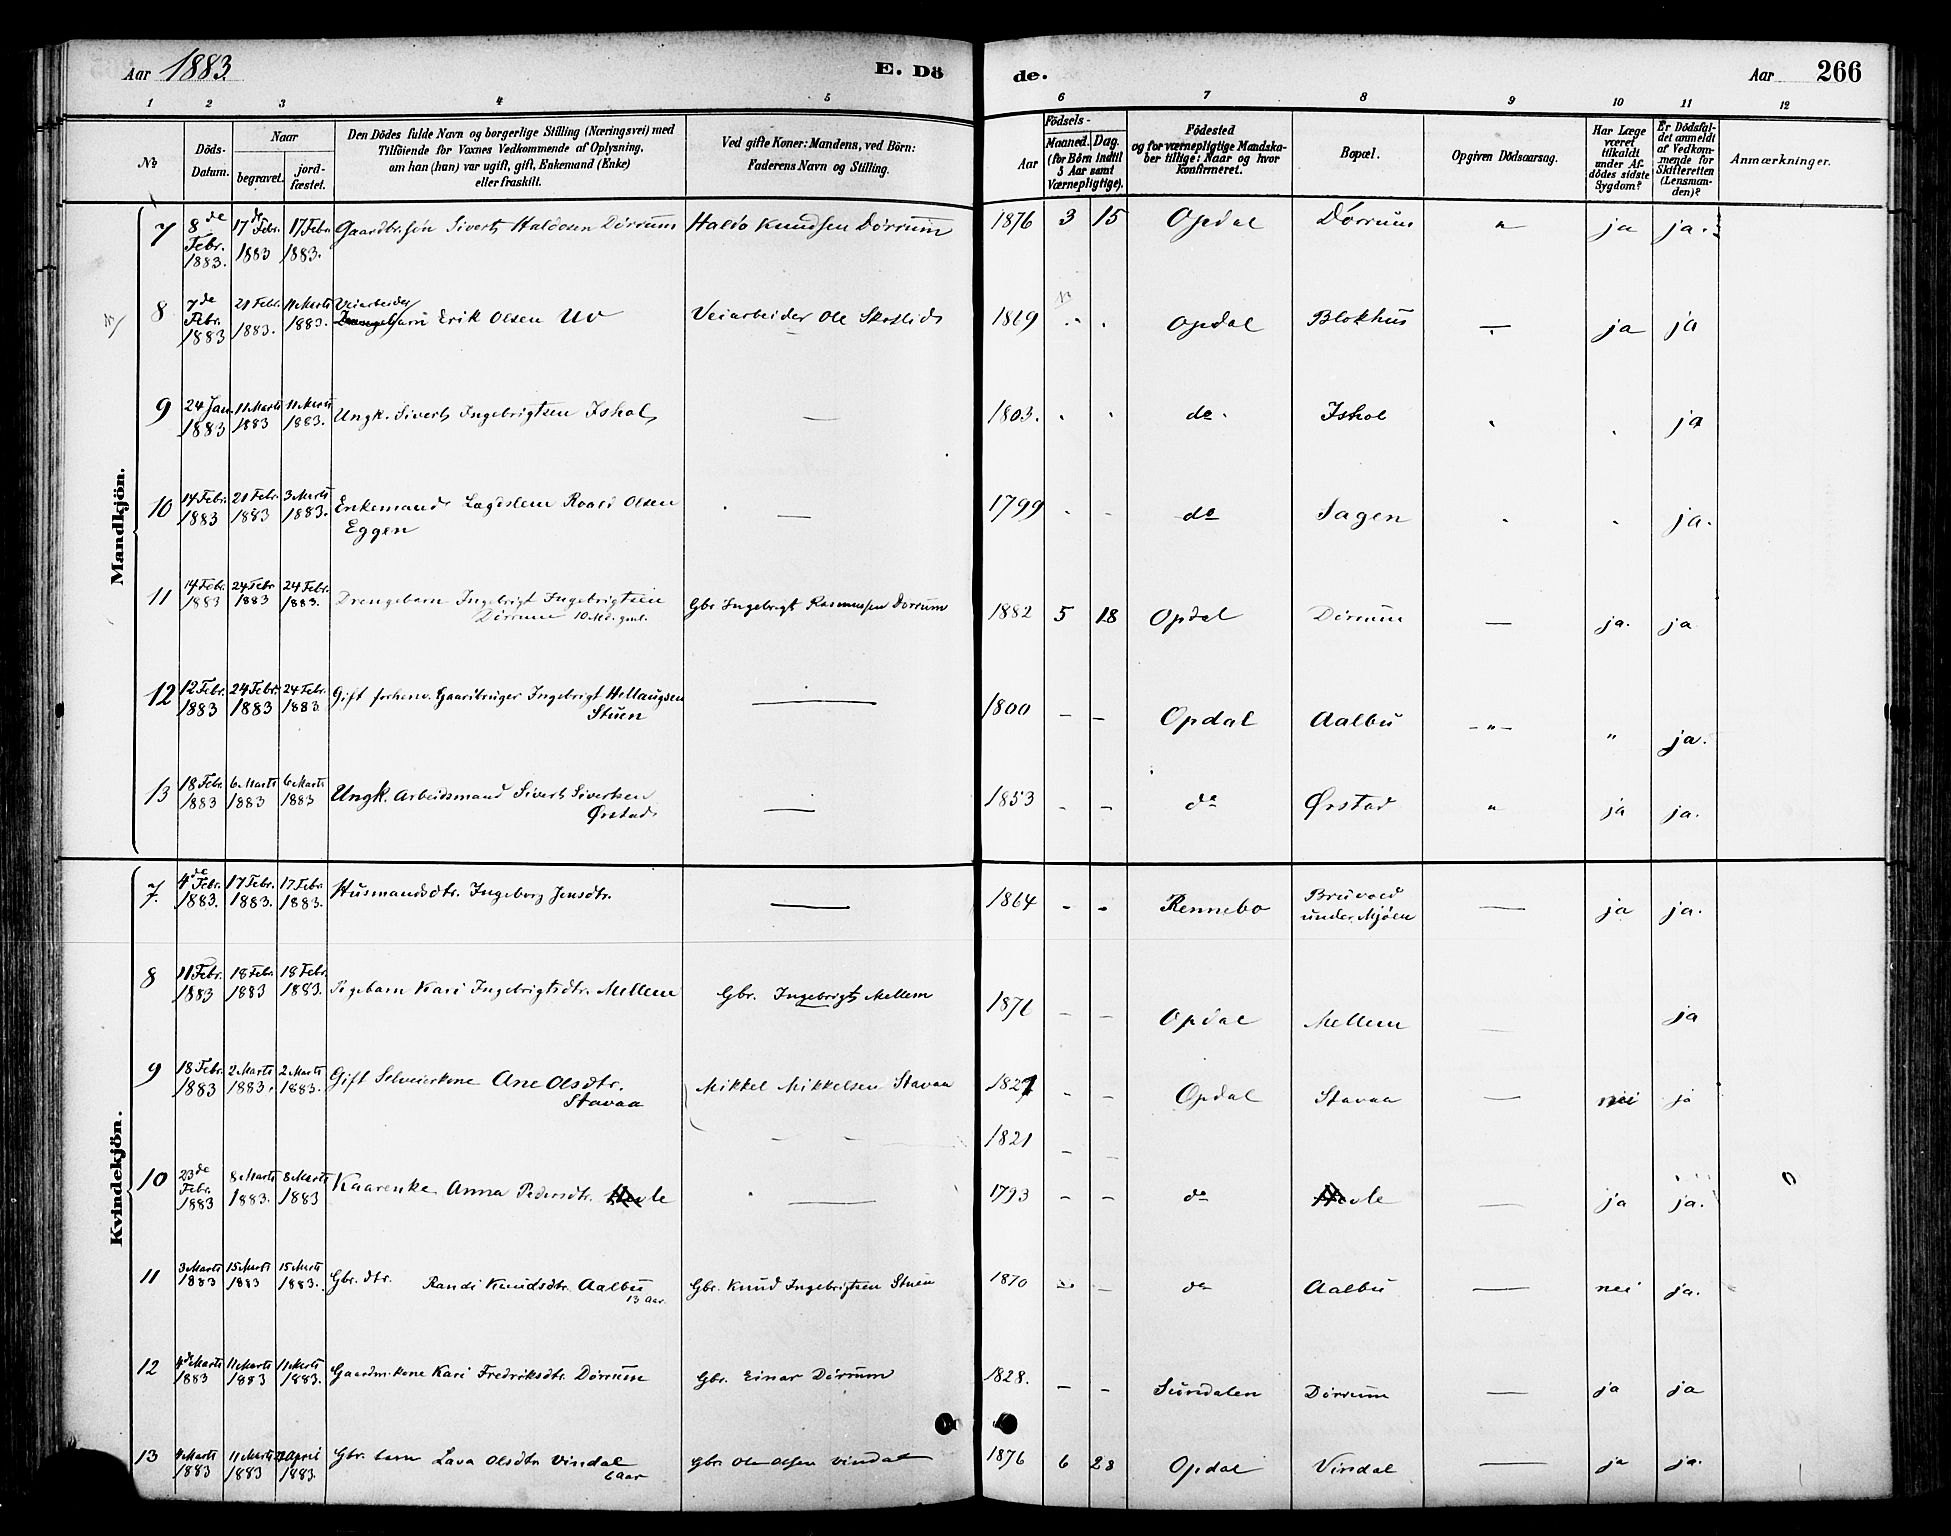 Aar 1883. E. Dö
de. Aar 266
1 2 3 4 5 6 7 8 9 10 11 12
No
Döds-Datum.
Naar
begravet.
jord-fæstet.
Den Dödes fulde Navn og borgerlige Stilling (Næringsvei) med
Tilföiende for Voxnes Vedkommende af Oplysning,
om han (hun) var ugift, gift, Enkemand (Enke)
eller fraskilt.
Ved gifte Koner: Mandens, ved Börn:
Faderens Navn og Stilling.
Födsels-
Aar
Maaned. Dag.
(for Börn indtil
5 Aar samt
Værnepligtige).
Födested
og for værnepligtige Mandska-
ber tillige: Naar og hvor
konfirmeret.
Bopæl.
Opgiven Dödsaarsag.
Har Læge
været
tilkaldt
under Af-
dödes sidste
Sygdom?
Er Dödsfal-
det anmeldt
af Vedkom-
mende for
Skifteretten
(Lensman-
den)?
Anmærkninger.
Mandkjön.
7 8de Febr. 1883. 17de Febr. 1883 17 Febr. 1883. Gaardbr.søn Sivert Haldosen Dørrum Haldo Knudsen Dørrum 1876 3 15 Opdal Dørrum " ja ja.
8 7de Febr. 1883 21 Febr. 1883. 11 Marts 1883. Veiarbeider Erik Olsen Uv Veiarbeider Ole Skotlid 1869 Opdal Blokhus — ja ja
9 24 Jan. 1883 11 Marts 1883 11 Marts 1883. Ungk. Sivert Ingebrigtsen Ishol — 1803. do. Ishol ja
10 14 Febr. 1883 21 Febr. 1883 3 Marts 1883. Enkemand Lægdslem Roald Olsen
Eggen — 1799 - - do Sagen ja.
11 14 Febr. 1883 24 Febr 1883 24 Febr. 1883. Drengebarn Ingebrigt Ingebrigtsen
Dørrum 10 Md. gml. Gbr Ingebrigt Rasmussen Dørrum 1882 5 18 Opdal Dørrum — ja. ja
12 12 Febr. 1883 24 Febr. 1883 24 Febr. 1883 Gift forhenv. Gaardbruger Ingebrigt Hellaugsen
Stuen — 1800 - - Opdal Aalbu -"- " ja.
13 18 Febr. 1883 6 Marts 1883 6 Marts 1883 Ungk. Arbeidsmand Sivert Sivertsen
Ørstad — 1853 - - do Ørstad " ja ja.
Kvindekjön.
7. 4de Febr. 1883. 17 Febr. 1883. 17 Febr. 1883. Husmandsdtr. Ingeborg Jensdtr. — 1864 - - Rennebo Bruvold
under Mjøen — ja ja.
8 11 Febr. 1883 18 Febr. 1883 18 Febr. 1883. Pigebarn Kari Ingebrigtsdtr. Mellem Gbr. Ingebrigt Mellem 1871 - - Opdal Mellem — ja
9 18 Febr. 1883 2 Marts 1883. 2 Marts 1883. Gift Selveierkone Ane Olsdtr.
Stavaa Mikkel Mikkelsen Stavaa 1827 - - Opdal Stavaa — nei ja
1821
10 23de Febr. 1883 8 Marts 1883. 8 Marts 1883 Kaarenke Anna Pedersdtr. — 1793 - - do — ja ja.
11 3 Marts 1883 15 Marts 1883 15 Marts 1883. Gbr. dtr. Randi Knudsdtr. Aalbu
13 Aar. Gbr. Knud Ingebrigtsen Stuen 1870 - - do Aalbu — nei ja.
12 4de Marts 1883 11 Marts 1883 11 Marts 1883. Gaardmkone Kari Fredriksdtr. Dørrum Gbr. Einar Dørrum 1828. - - Sundalen Dørrum — ja ja
13 4 Marts 1883 11 Marts 1883 April 1883. Gbr. barn Lava Olsdtr Vindal
6 Aar Gbr. Ole Olsen Vindal 1876 6 28 Opdal Vindal — ja ja.